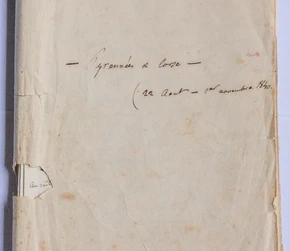 — Pyrennées & Corse —
(22 Aout — 1er novembre 1840.